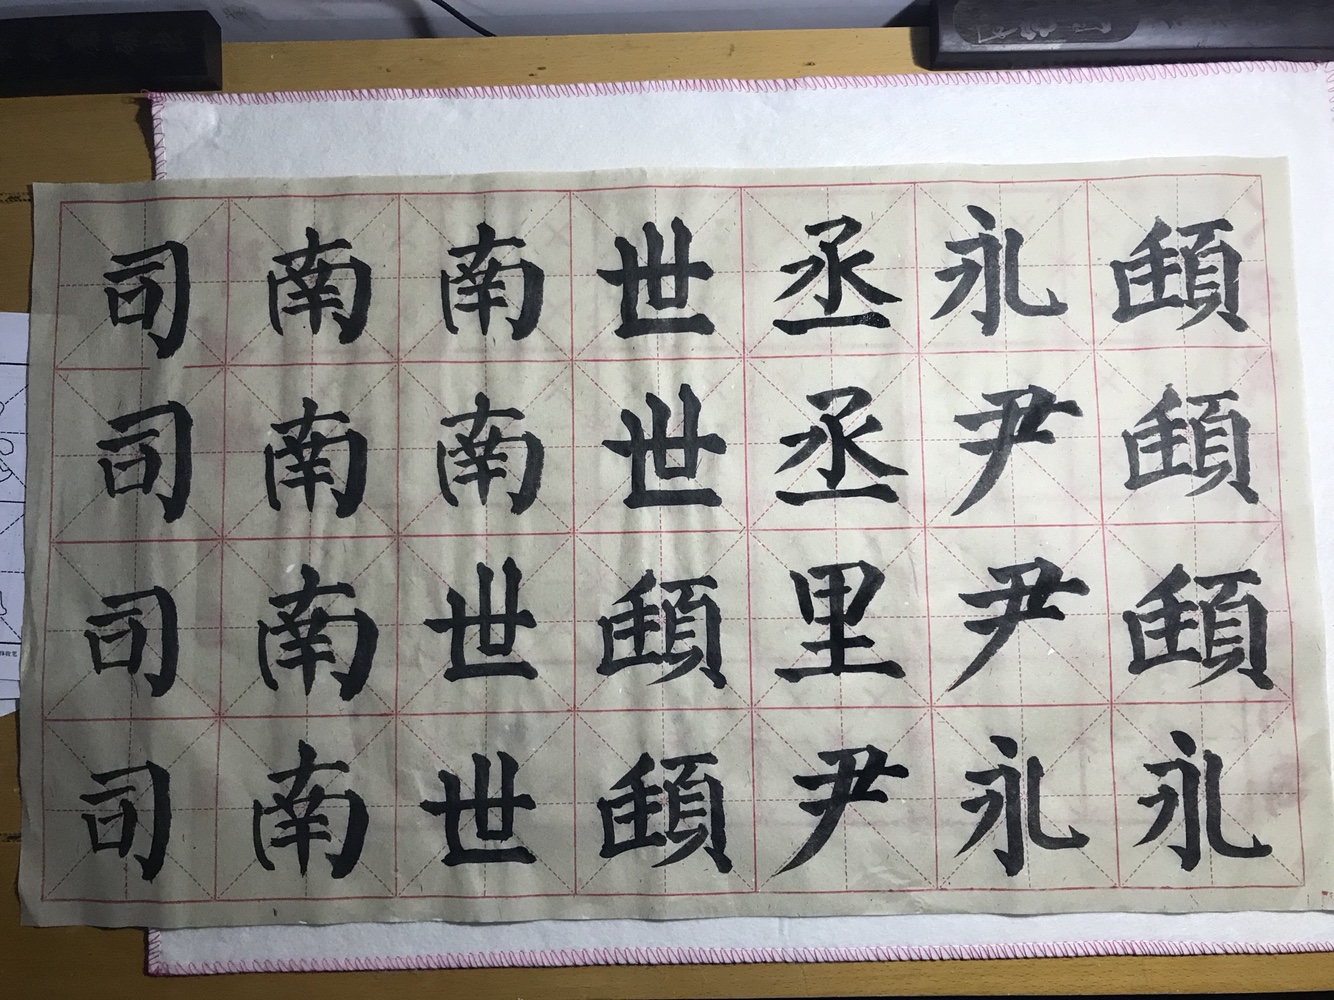 頤頤頤永
永尹尹永
丞丞里尹
世世頤頤
南南世世
南南南南
司司司司